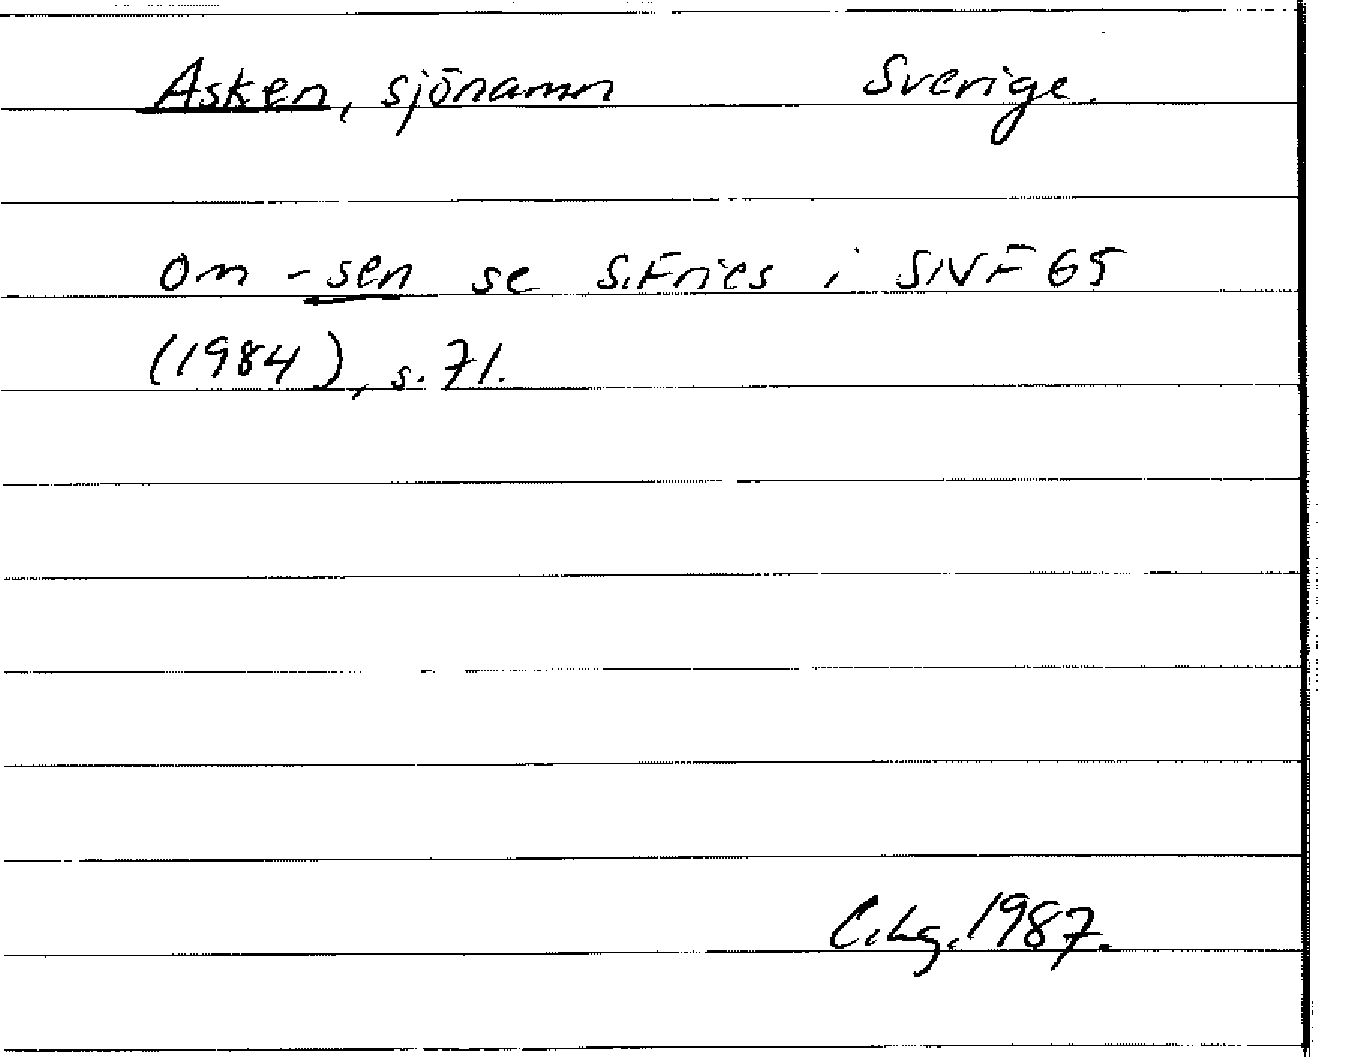 Asken, sjönamn Sverige.
Om -sen se S.Fries i SNF 65
(1984), s. 71.
C.Lg. 1987.